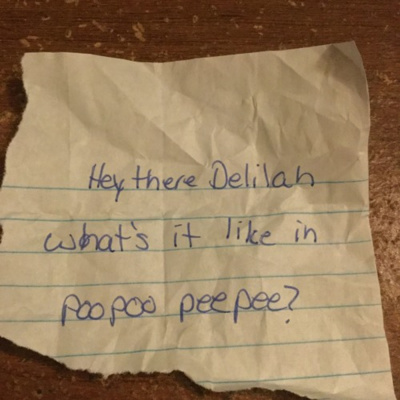 Hey there Delilah
what's it like in
poopoo peepee?